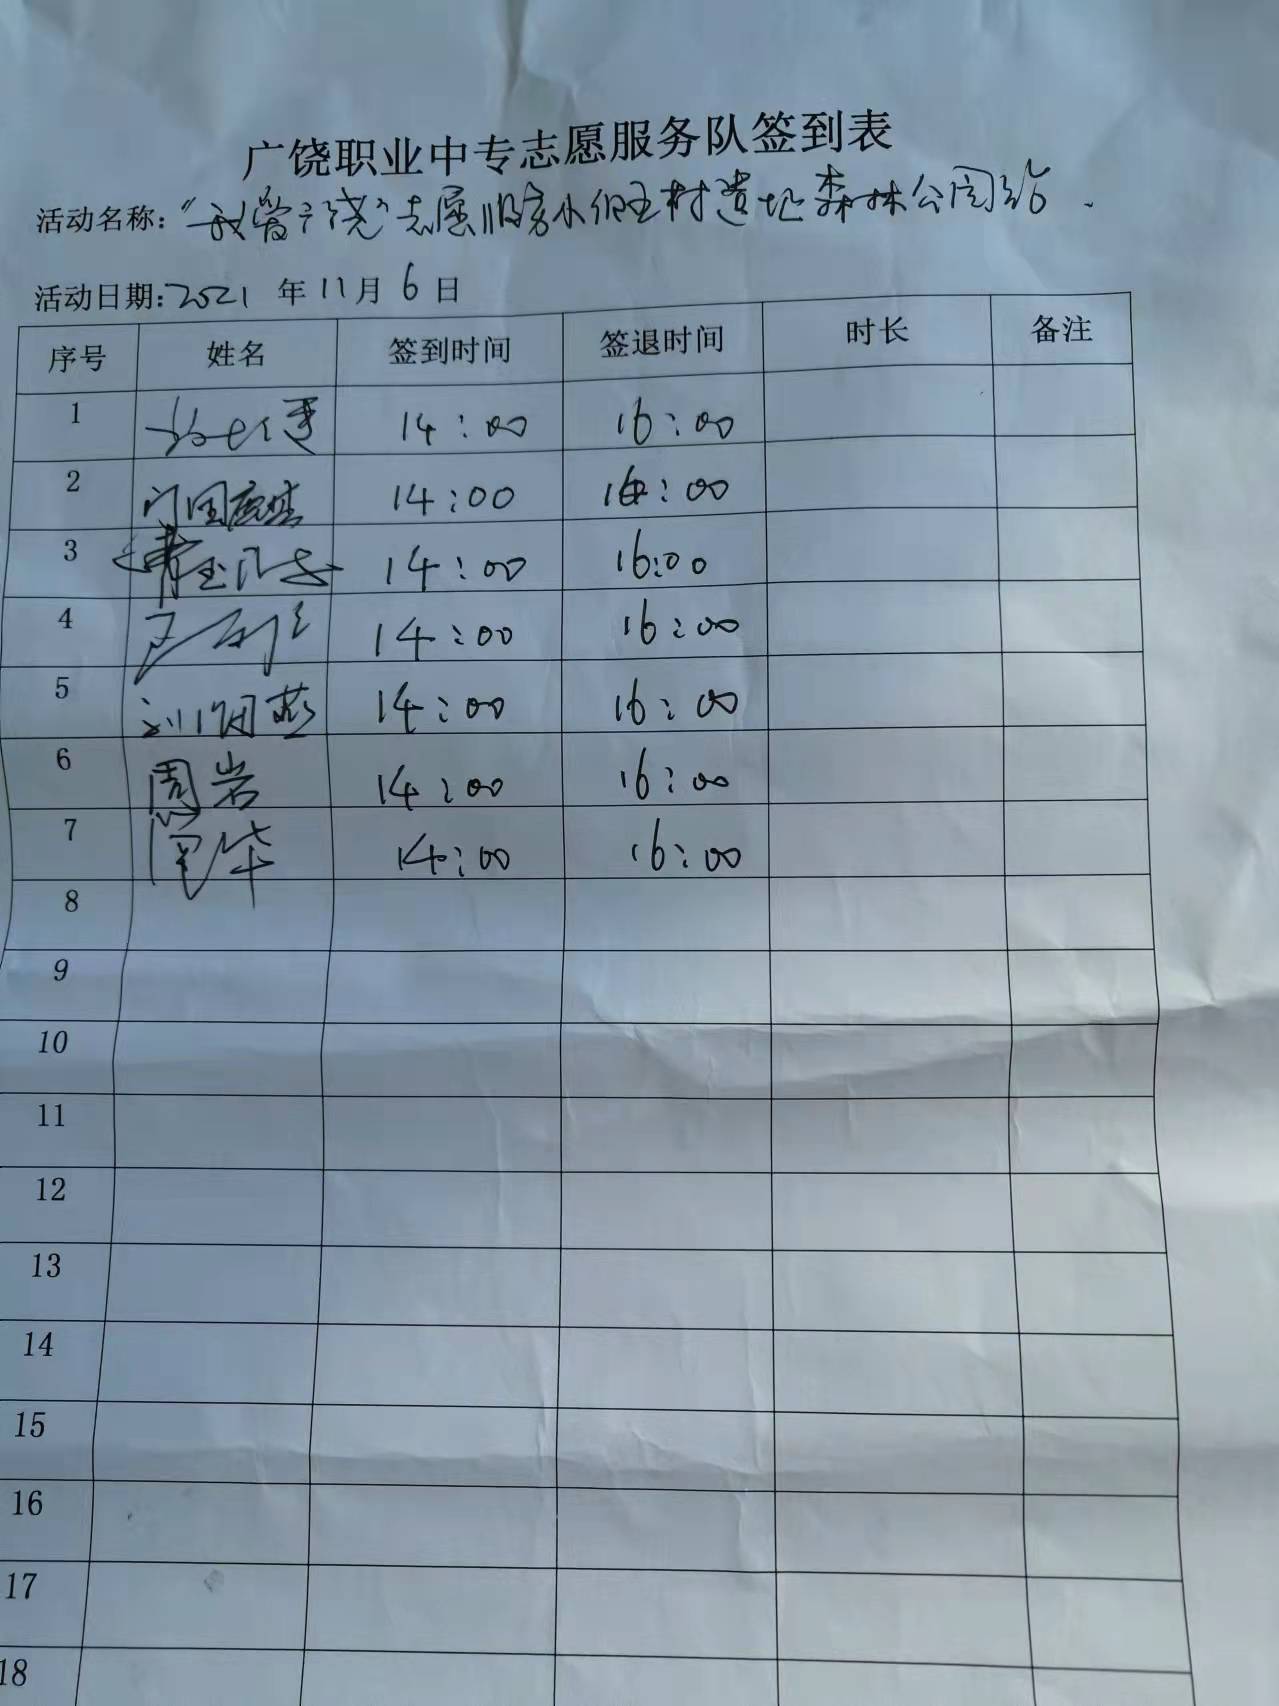 广饶职业中专志愿服务队签到表
活动名称："广饶"志愿服务村遗址森林公园站
活动日期：2021 年 11 月 6 日
序号 姓名 签到时间 签退时间 时长 备注
1 14:00 16:00
2 14:00 16:00
3 14:00 16:00
4 14:00 16:00
5 14:00 16:00
6 周岩 14:00 16:00
7 14:00 16:00
8
9
10
11
12
13
14
15
16
17
18